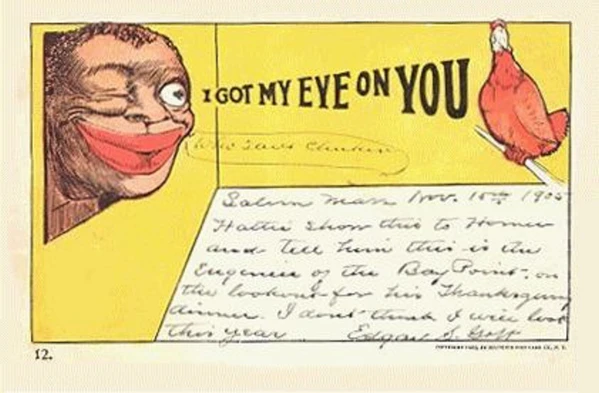 I GOT MY EYE ON YOU
Who said Chicken
Salem Mass Nov. 15th 1905
Hattie show this to Homer
and tell him this is the
of the Bay Point, on
the lookout for his Thanksgiving
dinner. I dont think I will
this year Edgar S.
12.